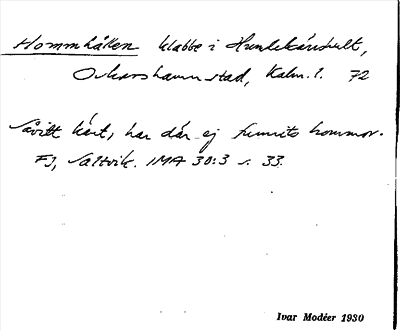 Hommhällen klabbe i Humlekärrshult,
Oskarshamn stad, Kalm. l. 72
Såvitt känt, har där ej funnits hommor.
FJ, Saltvik. IMA 30:3 s. 33.
Ivar Modéer 1930